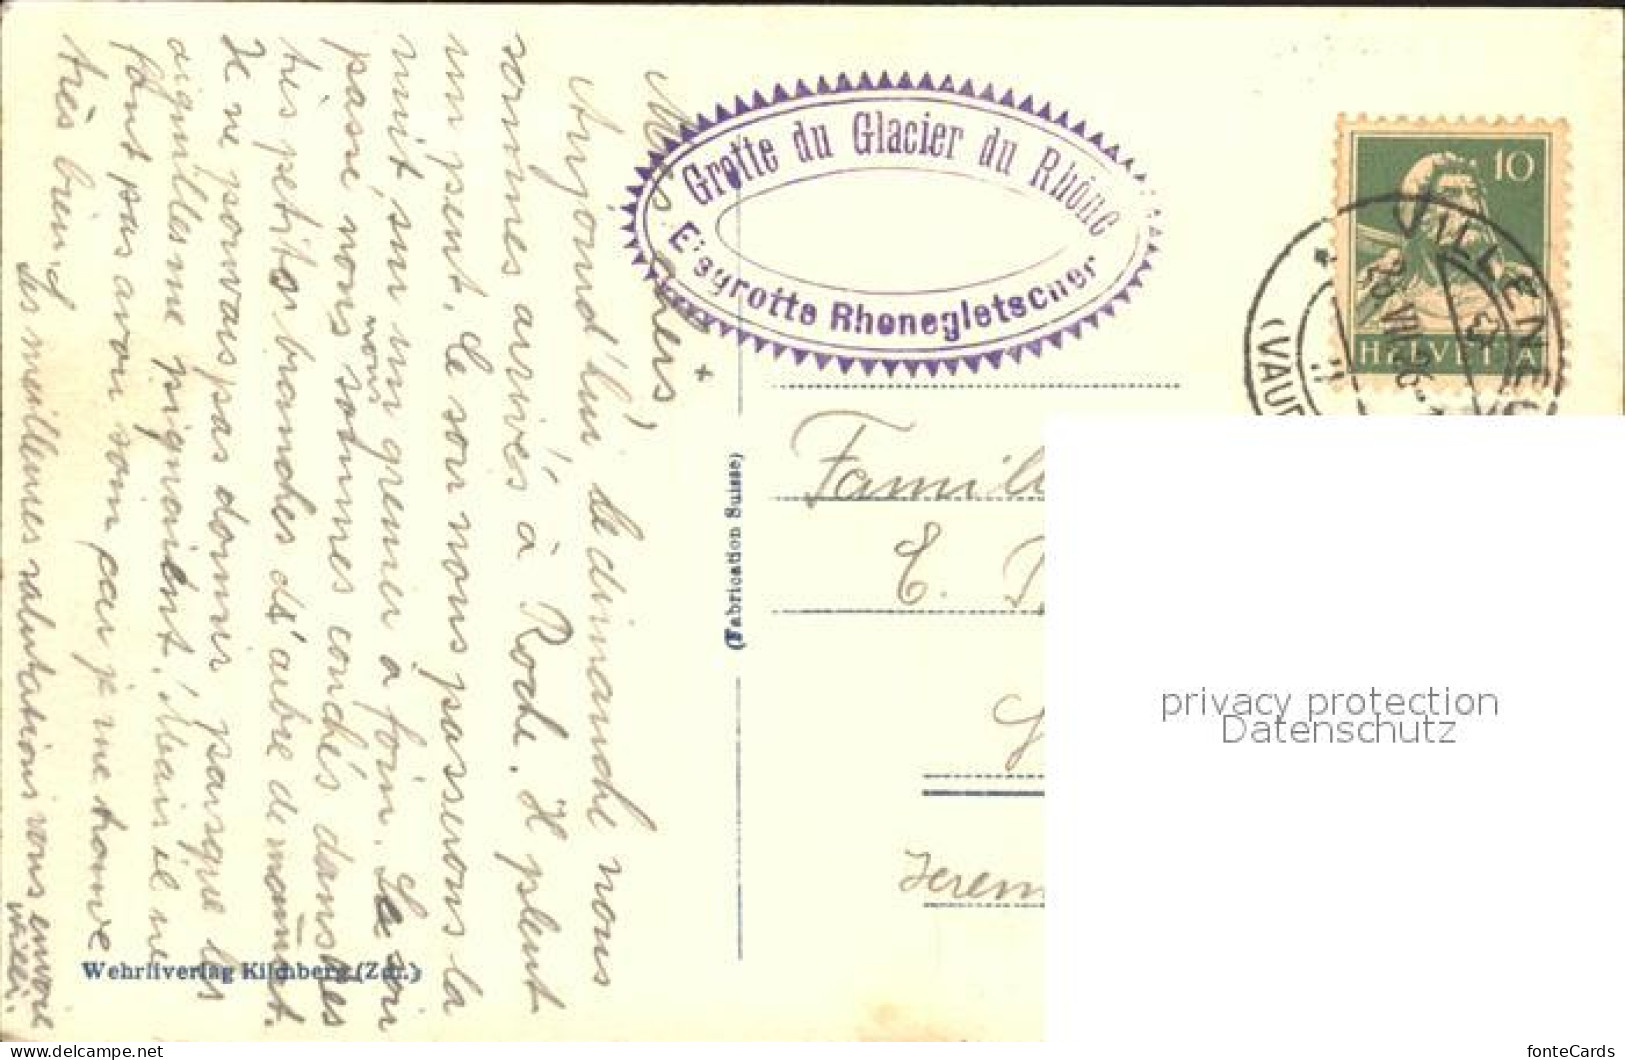 Mes chers,
Aujourd'hui le dimanche nous
sommes arrivés à Roche. Il pleut
un peut. Le soir nous passerons la
nuit sur un grenier a foin. Le soir
passé nous nous sommes couchés dans des
très petites branches d'aubre de
Je ne pouvais pas dormir parsque les
aiguilles me piquaient. Mais il ne
faut pas avoir soin car je me trouve
très bien!
Les meilleures salutations vous envoie
Willi.
Grotte du Glacier du Rhône
Eisgrotte Rhonegletscher
(Fabrication Suisse)
Wehrliverlag Kilchberg (Zch.)
10
HELVETIA
VILLENEUVE
(VAUD
Famili
E.
Jerem
privacy protection
Datenschutz
https://www.delcampe.net
fonteCards